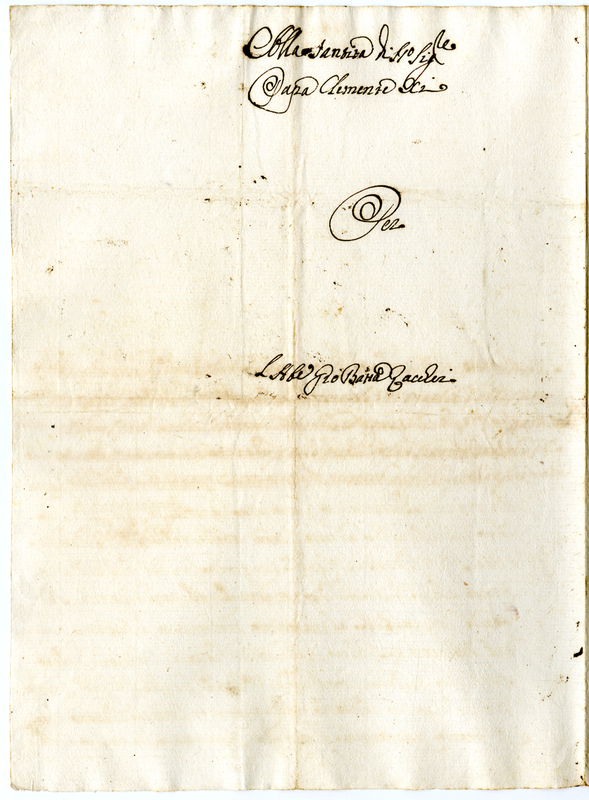 Alla Santità di Nrō Sigre
Papa Clemente XI
Per
L'Abe Gio Batta